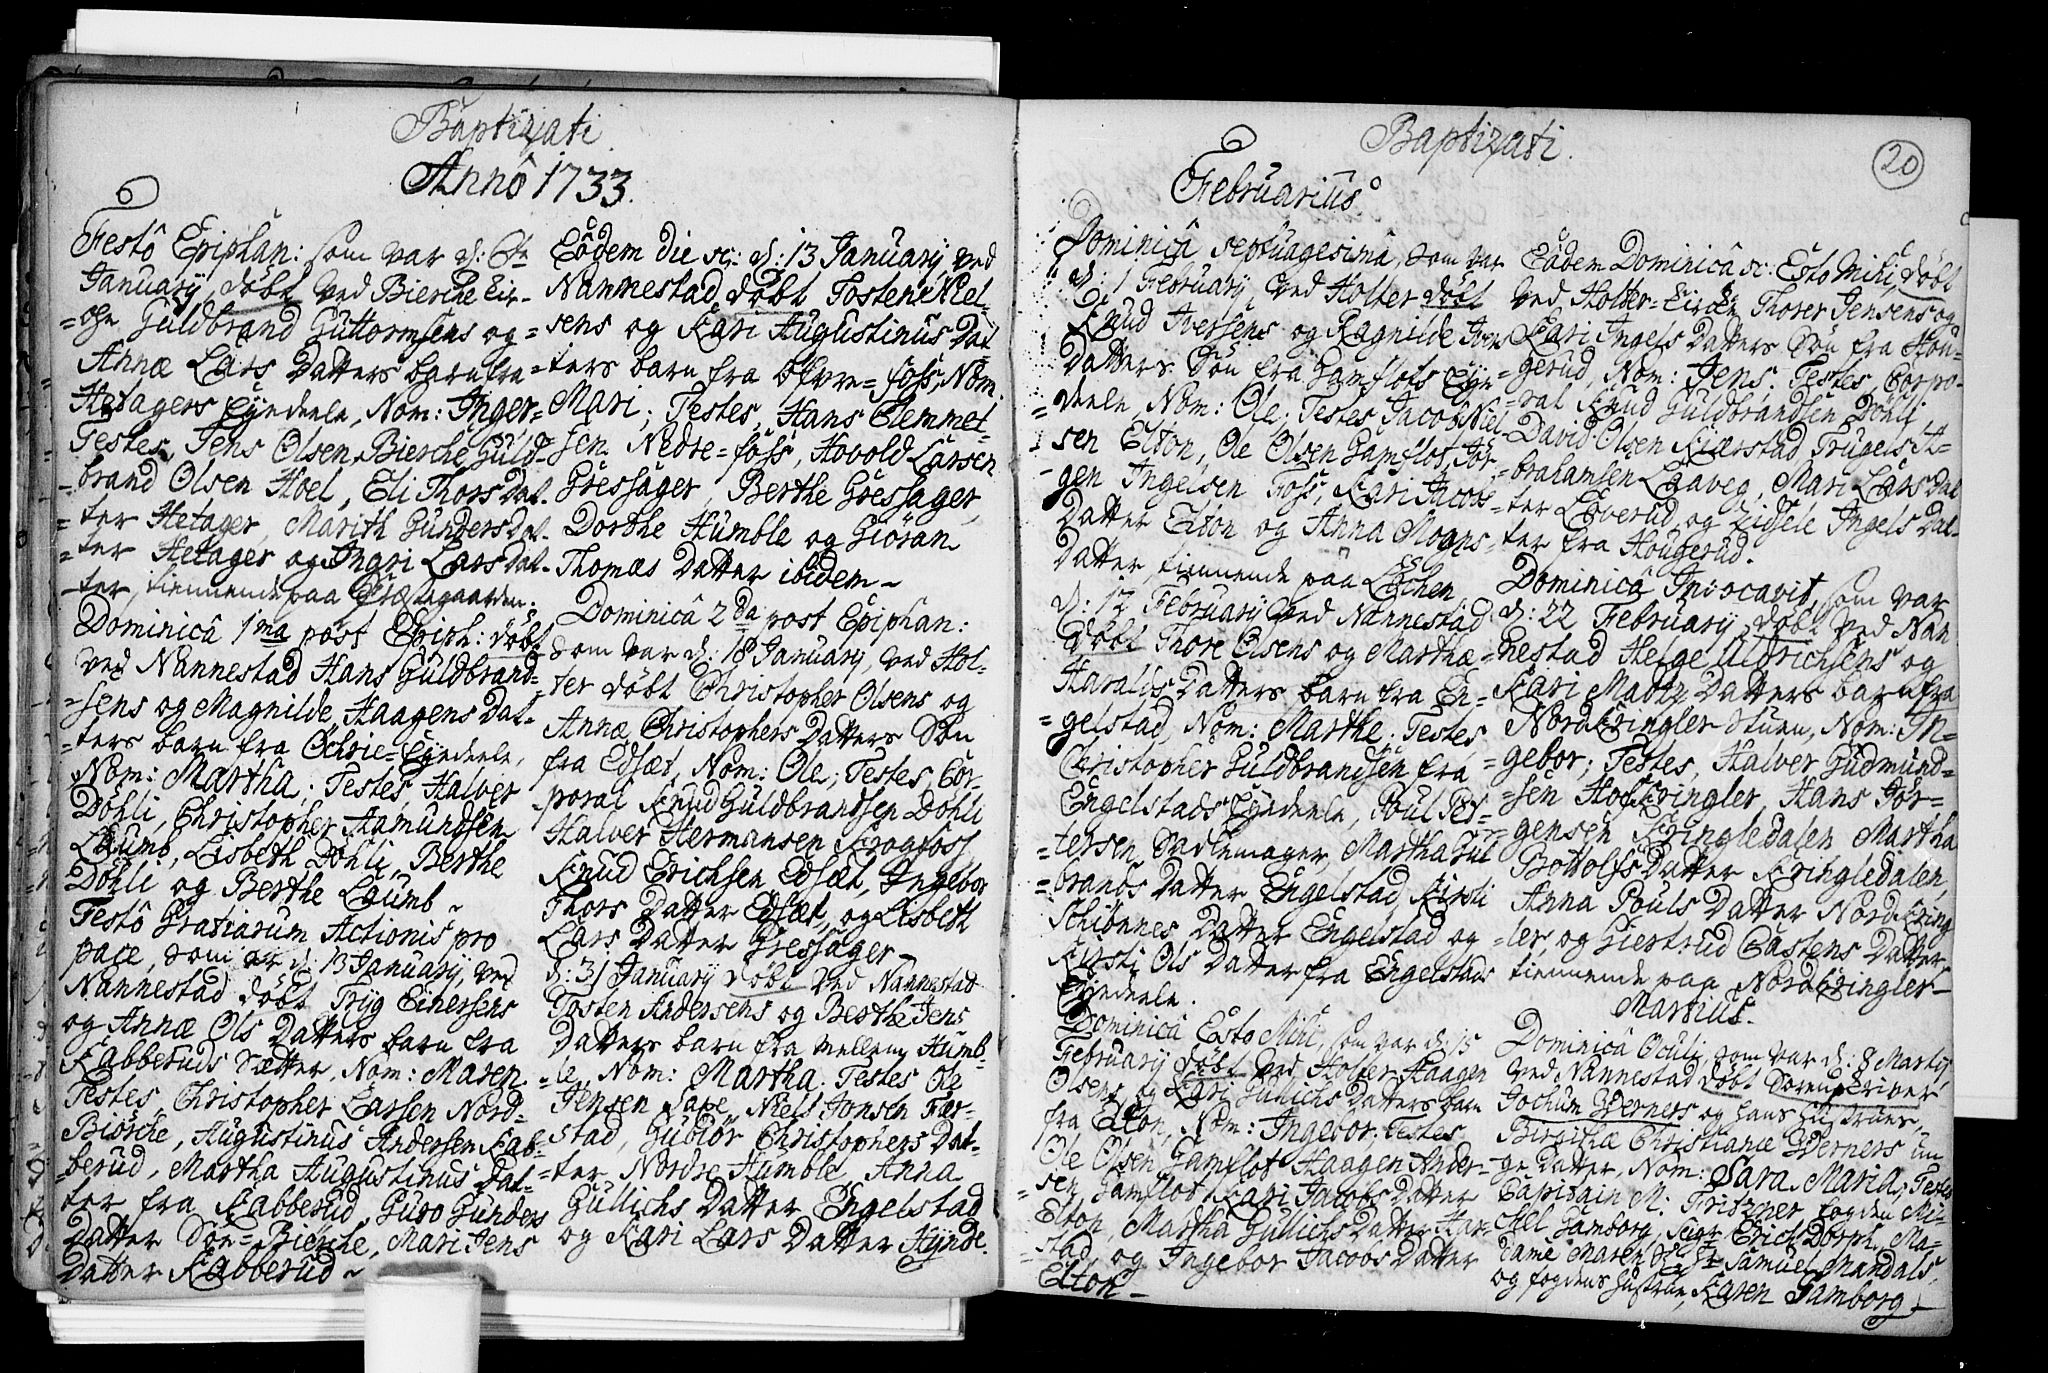 Baptizati.
Annô 1733.
Festô Epiphan: som var d: 6te
Januarij, döbt ved Bierche Kir-
=che Guldbrand Guttormsens og
Annæ Lars Datters barn fra
Hetagers Eyedeele, Nom: Inger.
Testes, Jens Olsen Bierche, Guld-
=brand Olsen Hoel, Eli Thors Dat-
=ter Hetager, Marith Gunders Dat-
=ter Hetager og Ingri Lars Dat-
=ter, tiennende paa Præstegaarden.
Dominicâ 1ma post Epiph: döbt
ved Nannestad Hans Guldbrand-
=sens og Magnilde Haagens Dat-
=ters barn fra Ochrie-Eyedeele,
Nom: Martha; Testes, Halver
Döhli, Christopher Aamundsen
Laumb, Lisbeth Döhli, Berthe
Döhli og Berthe Laumb ~
Festô Gratiarum Actionis pro
pace, som var d: 13 Januarij, ved
Nannestad döbt Tryg Einersens
og Annæ Ols Datters barn fra
Kabberuds Sætter, Nom: Maren.
Testes Christopher Larsen Nord-
Biörche, Augustinus Andersen Kab-
=berud, Martha Augustinus Dat-
=ter fra Kabberud, Guro Gunders
Datter Sör=Bierche, Mari Jens
Datter Kabberud ~
Eôdem die sc: d: 13 Januarij, ved
Nannestad döbt Tosten Niel-
=sens og Kari Augustinus Dat-
=ters barn fra öfvre=foss, Nom:
Mari; Testes, Hans Clemmet-
sen Nedre=foss, Hovold Larsen
Gressager, Berthe Gressager,
Dorthe Humble og Giöran
Thomæs Datter ibidem ~
Dominicâ 2da post Epiphan:
som var d: 18 Januarij, ved Hol-
=ter döbt Christopher Olsens og
Annæ Christophers Datters Sön
fra Edsæt, Nom: Ole; Testes, Cor-
poral Knud Guldbrandsen Döhli
Halver Hermansen Krogfoss,
Knud Erichsen Edsæt, Ingebor
Thors Datter Edsæt, og Lisbeth
Lars Datter Gressager ~
d: 31 Januarij döbt ved Nannestad
Tosten Andersens og Berthe Jens
Datters barn fra mellem Humb-
=le, Nom: Martha. Testes Ole
Jensen Saxe, Niels Jonsen Kier-
stad, Gubiör Christophers Dat-
=ter Nordre Humble, Anna
Gullichs Datter Engelstad
og Kari Lars Datter Hynde.
Baptizati.
20
Februarius.
Dominicâ septuagesimâ, som var
d: 1 Februarij, ved Holter döbt
Knud Iversens og Ragnilde Ivers
Datters Sön fra Gamflots Eye-
=deele, Nom: Ole; Testes Jacob Niel-
sen Elton, Ole Olsen Gamflot, Jör-
gen Ingelsen Foss, Kari Jacobs
Datter Elton og Anna Mogns
Datter, tiennende paa Löchen.
d: 12 Februarij ved Nannestad
döbt Thore Olsens og Marthæ
Haralds Datters barn fra En-
=gelstad, Nom: Marthe. Testes
Christopher Guldbrandsen fra
Engelstads Eyedeele, Poul Pet-
=tersen Sadlemager, Martha Gul-
=brands Datter Engelstad, Kirsti
Schiönnes Datter Engelstad og
Kirsti Ols Datter fra Engelstads
Eyedeele.
Dominicâ Esto Mihi, som var d: 15
Februarij döbt ved Holter Haagen
Olsens og Kari Gullichs Datters barn
fra Elton, Nom: Ingebor; Testes
Ole Olsen Gamflot, Haagen Ander-
=sen Gamflot, Kari Jacobs Datter
Elton, Martha Gullichs Datter Har-
=stad og Ingebor Jacobs Datter
Elton ~
Eâdem Dominicâ sc: Esto Mihi, döbt
ved Holter=Kirche Thorer Jensens og
Kari Ingels Datters Sön fra Hou-
=gerud, Nom: Jens. Testes, Corpo-
=ral Knud Guldbrandsen Döhli
David Olsen Kiærstad, Trugels A-
=brahamsen Laaveg, Mari Lars Dat
=ter Löverud og Zidsele Ingels Dat-
=ter fra Hougerud.
Dominicâ Invocavit, som var
d: 22 Februarij, döbt ved Nan-
nestad Helge Aldrichsens og
Kari Madtz Datters barn fra
Nord Kringler stuen, Nom: In-
=gebor; Testes, Halver Gudmund-
=sen Hofkringler, Hans Jör-
gensen Kringledalen Martha
Bottolfs Datter Kringledalen,
Anna Pouls Datter Nord Kring-
=ler, og Giertrud Castens Datter
tiennende paa Nordkringler ~
Martius.
Dominicâ Oculi, som var d: 8 Martij
ved Nannestad döbt Sorenscriver
Jochum Werners og hans Hustrues
Birgithæ Christianæ Werners un-
ge Datter, Nom: Sara Maria; Testes
Capitain M: Fritzner, fogden Mi-
=chel Gamborg, Seigr Erich Dorph, Ma-
dame Maren Sl. Hr Samuel Mandals,
og fogdens Hustrue, Karen Gamborg ~